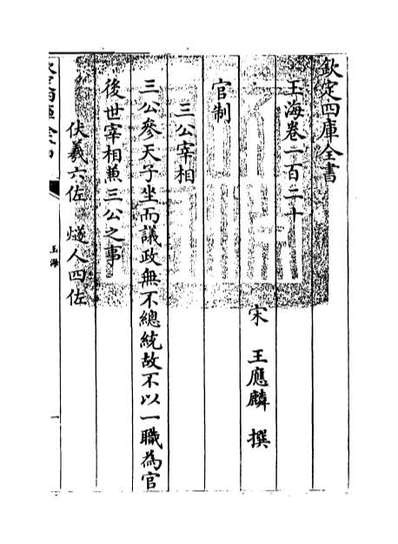 欽定四庫全書
玉海卷一百二十
宋 王應麟 撰
官制
三公宰相
三公參天子坐而議政無不總統故不以一職為官
後世宰相兼三公之事
伏羲六佐 燧人四佐
玉海
一